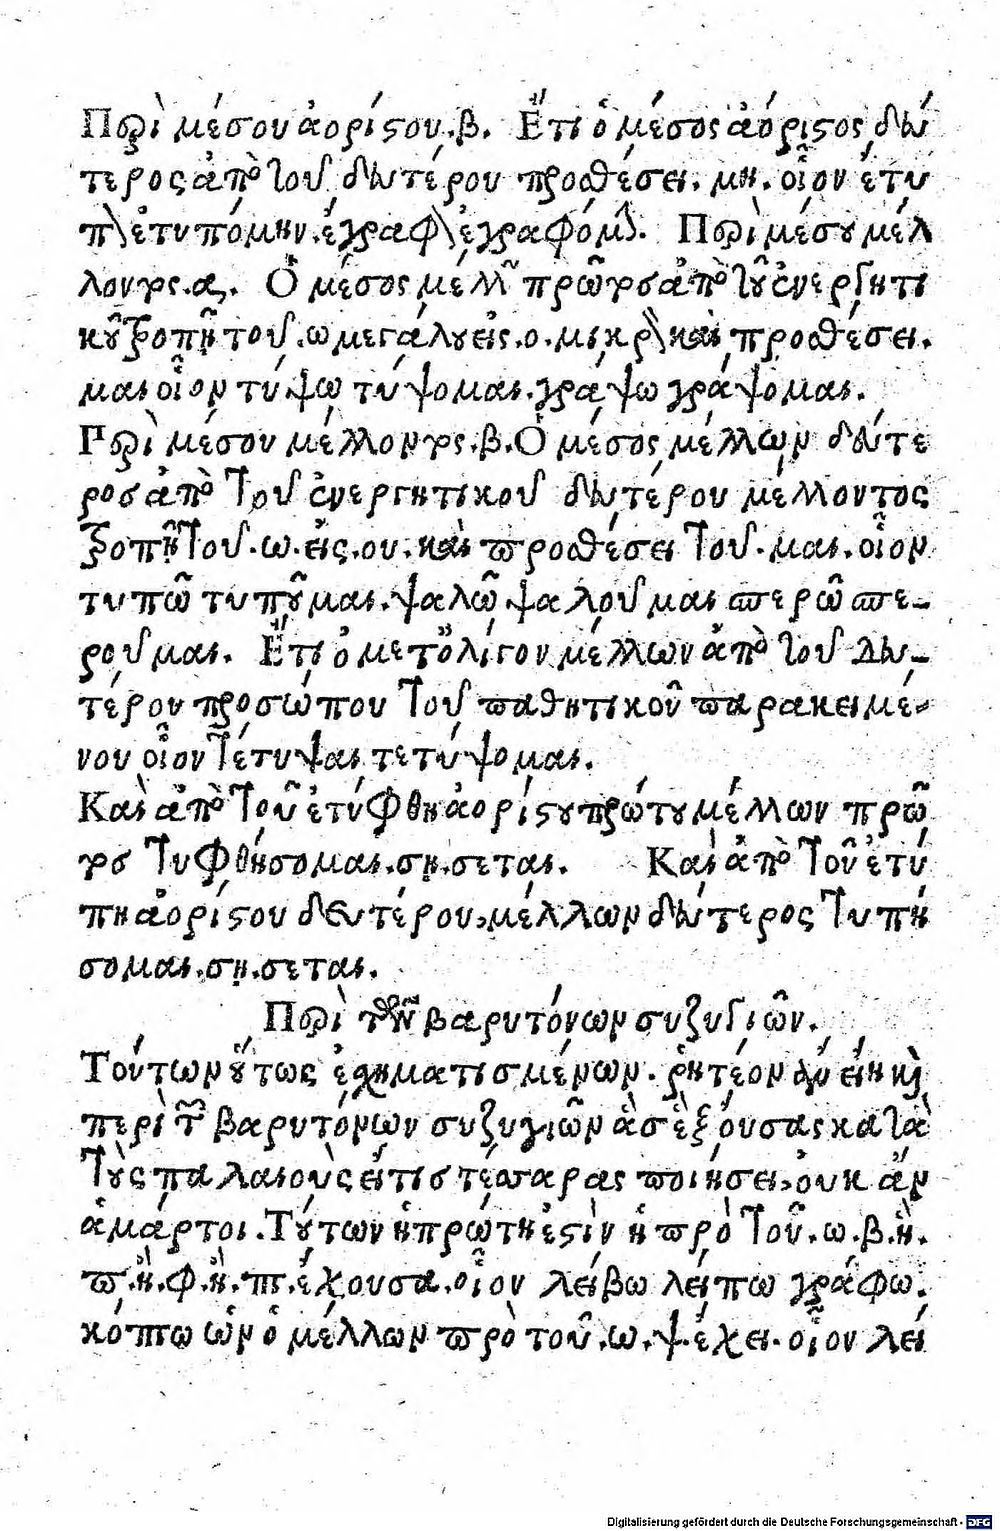 Περὶ μέσου ἀορίστου.β. Ἔτι ὁ μέσος ἀόριστος δεύ
τερος ἀπὸ τοῦ δευτέρου προσθέσει. μη. οἷον ἔτυ
πον ἐτυπόμην. ἔγραφον ἐγραφόμην. Περὶ μέσου μέλ
λοντος.α. Ὁ μέσος μέλλων πρῶτος ἀπὸ τοῦ ἐνεργητι
κοῦ τροπῇ τοῦ.ω μεγάλου εἰς.ο.μικρὸν καὶ προσθέσει.
μαι οἷον τύψω τύψομαι.γράψω γράψομαι.
Περὶ μέσου μέλλοντος.β.Ὁ μέσος μέλλων δεύτε
ρος ἀπὸ τοῦ ἐνεργητικοῦ δευτέρου μέλλοντος
τροπῇ τοῦ.ω.εἰς.ου.καὶ προσθέσει τοῦ.μαι.οἷον
τυπῶ τυποῦμαι.ψαλῶ ψαλοῦμαι περῶ πε-
ροῦμαι. Ἔτι ὁ μετ'ὀλίγον μέλλων ἀπὸ τοῦ δευ-
τέρου προσώπου τοῦ παθητικοῦ παρακειμέ-
νου οἷον τέτυψαι τετύψομαι.
Καὶ ἀπὸ τοῦ ἐτύφθη ἀορίστου πρώτου μέλλων πρῶ
τος τυφθήσομαι.σῃ.σεται. Καὶ ἀπὸ τοῦ ἐτύ
πη ἀορίστου δευτέρου,μέλλων δεύτερος τυπή
σομαι.σῃ.σεται.
Περὶ τῶν βαρυτόνων συζυγιῶν.
Τούτων οὕτως ἐχηματισμένων. ῥητέον ἂν εἴη καὶ
περὶ τῶν βαρυτόνων συζυγιῶν ἃς ἓξ οὔσας κατὰ
τοὺς παλαιοὺς εἴτις τέσσαρας ποιήσει,οὐκ ἂν
ἁμάρτοι.Τούτων ἡ πρώτη ἐστὶν ἡ πρὸ τοῦ.ω.β.ἢ.
π.ἢ.φ.ἢ.πτ.ἔχουσα.οἷον λείβω λείπω γράφω.
κόπτω ὧν ὁ μέλλων πρὸ τοῦ.ω.ψ.ἔχει.οἷον λεί
Digitalisierung gefördert durch die Deutsche Forschungsgemeinschaft - DFG